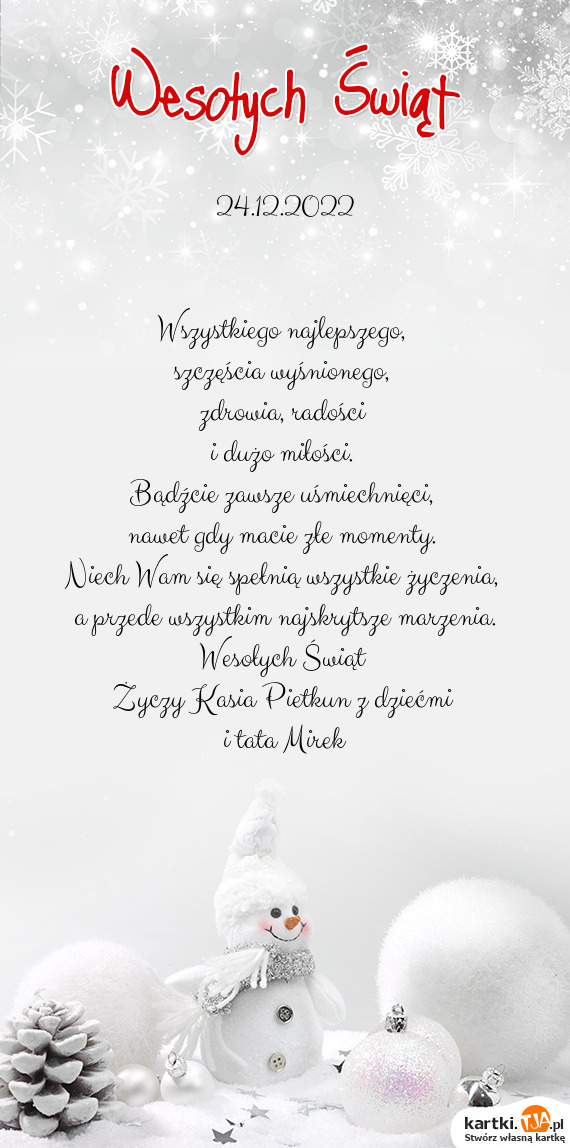 Wesołych Świąt
24.12.2022
Wszystkiego najlepszego,
szczęścia wyśnionego,
zdrowia, radości
i dużo miłości.
Bądźcie zawsze uśmiechnięci,
nawet gdy macie złe momenty.
Niech Wam się spełnią wszystkie życzenia,
a przede wszystkim najskrytsze marzenia.
Wesołych Świąt
Życzy Kasia Pietkun z dziećmi
i tata Mirek
kartki.TJA.pl
Stwórz własną kartkę